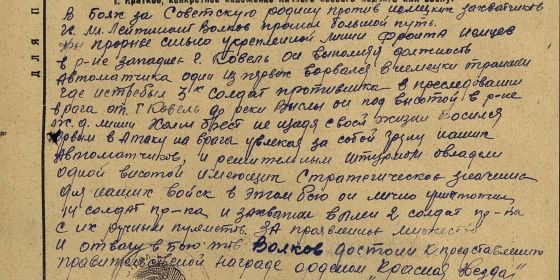 1. Краткое, конкретное изложение личного боевого подвига или заслуг
В боях за Советскую родину против немецких захватчиков
Лейтенант Волков прошел большой путь.
При прорыве сильно укрепленной линии фронта немцев
в р-не западнее г. Ковель он выполняя должность
Автоматчика один из первых ворвался в немецкие траншеи
где истребил 3х солдат противника в преследовании
врага от г. Ковель до реки Вислы он под высотой в р-не
ж.д. линии Холм Брест не щадя своей жизни бросился
первым в Атаку на врага увлекая за собой группу наших
Автоматчиков, и решительным штурмом овладели
одной высотой имеющих Стратегическое значение
для наших войск в этом бою он лично уничтожил
14 солдат пр-ка и захватил в плен 2 солдат пр-ка
с их ручным пулеметом. За проявленное мужество
и отвагу в бою тов Волков достоин к представлению
правительственной награде орденом "Красная звезда"
ДЛЯ П